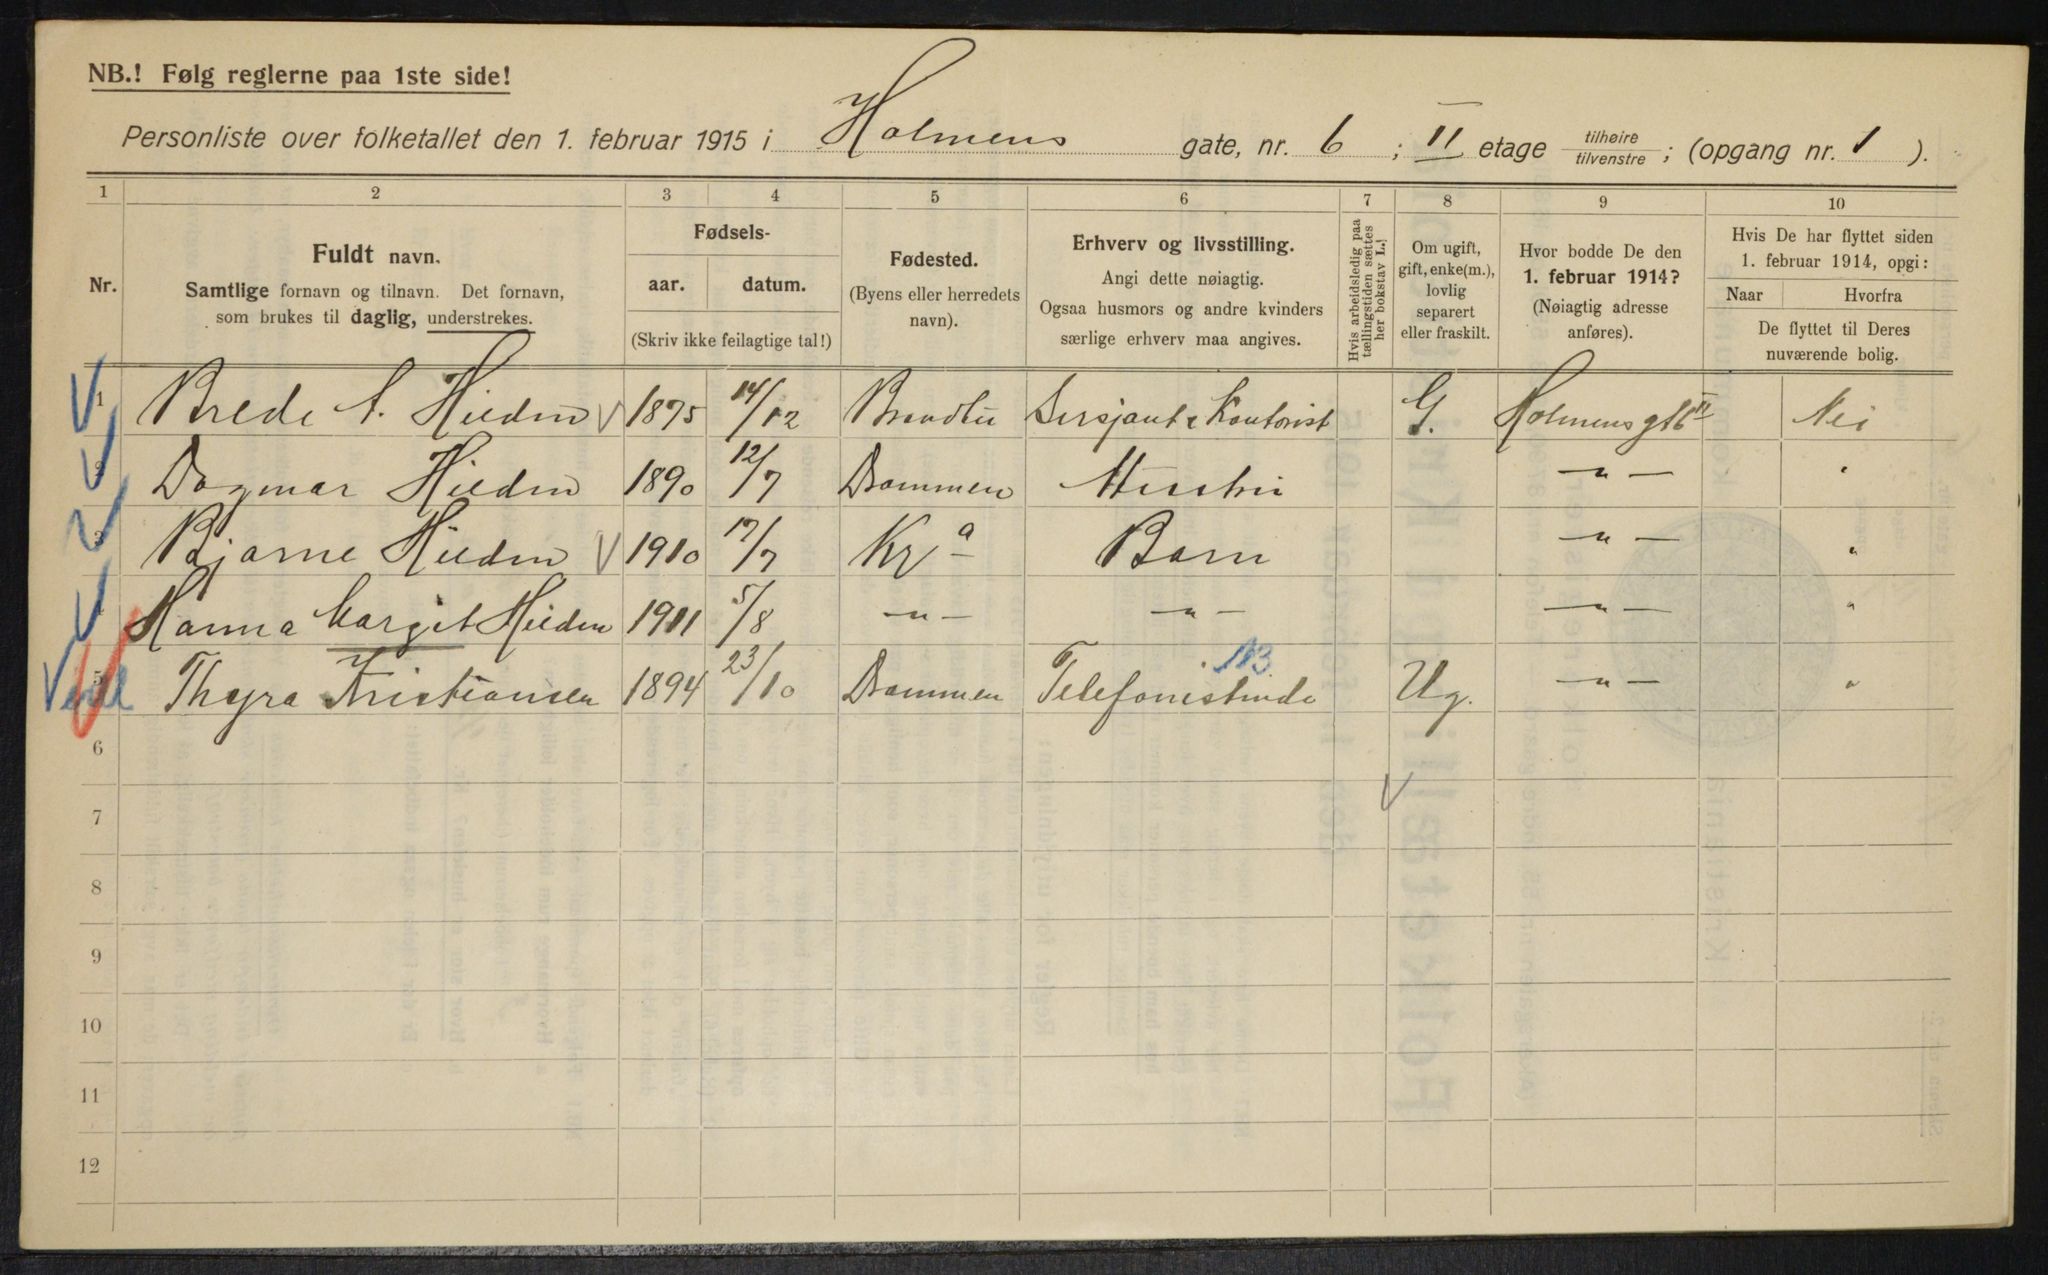 NB.! Følg reglerne paa 1ste side!
Personliste over folketallet den 1. februar 1915 i Holmens gate, nr. 6 ; II etage tilhøire/tilvenstre ; (opgang nr. 1 ).
1 2 3 4 5 6 7 8 9 10
Nr.
Fuldt navn.
Samtlige fornavn og tilnavn. Det fornavn,
som brukes til daglig, understrekes.
Fødsels-
aar. datum.
(Skriv ikke feilagtige tal!)
Fødested.
(Byens eller herredets
navn).
Erhverv og livsstilling.
Angi dette nøiagtig.
Ogsaa husmors og andre kvinders
særlige erhverv maa angives.
Hvis arbeidsledig paa
tællingstiden sættes
her bokstav L.]
Om ugift,
gift, enke(m.),
lovlig
separert
eller fraskilt.
Hvor bodde De den
1. februar 1914?
(Nøiagtig adresse
anføres).
Hvis De har flyttet siden
1. februar 1914, opgi:
Naar Hvorfra
De flyttet til Deres
nuværende bolig.
1 Brede A. Hilden 1875 14/12 Brandbu Sersjant & Kontorist G. Holmens gt 6 II Nei
2 Dagmar Hilden 1890 12/7 Drammen Hustru — " — "
3 Bjarne Hilden 1910 17/7 Kr a Barn — " — "
4 Hanna Margit Hilden 1911 5/8 — " — — " — — " — "
5 Thyra Kristiansen 1894 23/10 Drammen Telefonistinde Ug. — " — "
6
7
8
9
10
11
12